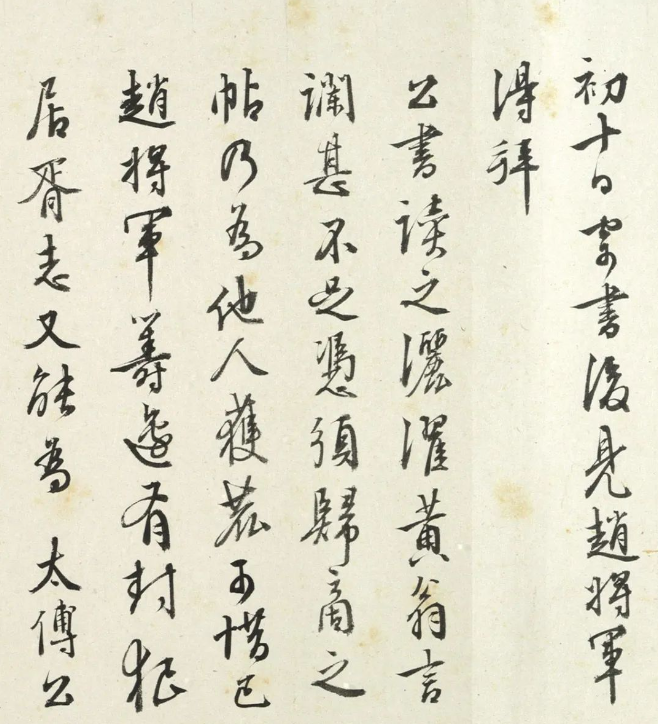 初十日寄書後見趙將軍
得拜
公書讀之灑濯黃翁言
讕甚不足憑須歸商之
帖乃為他人獲甚可惜已
趙將軍籌邊有封狼
居胥志又能為 太傅公